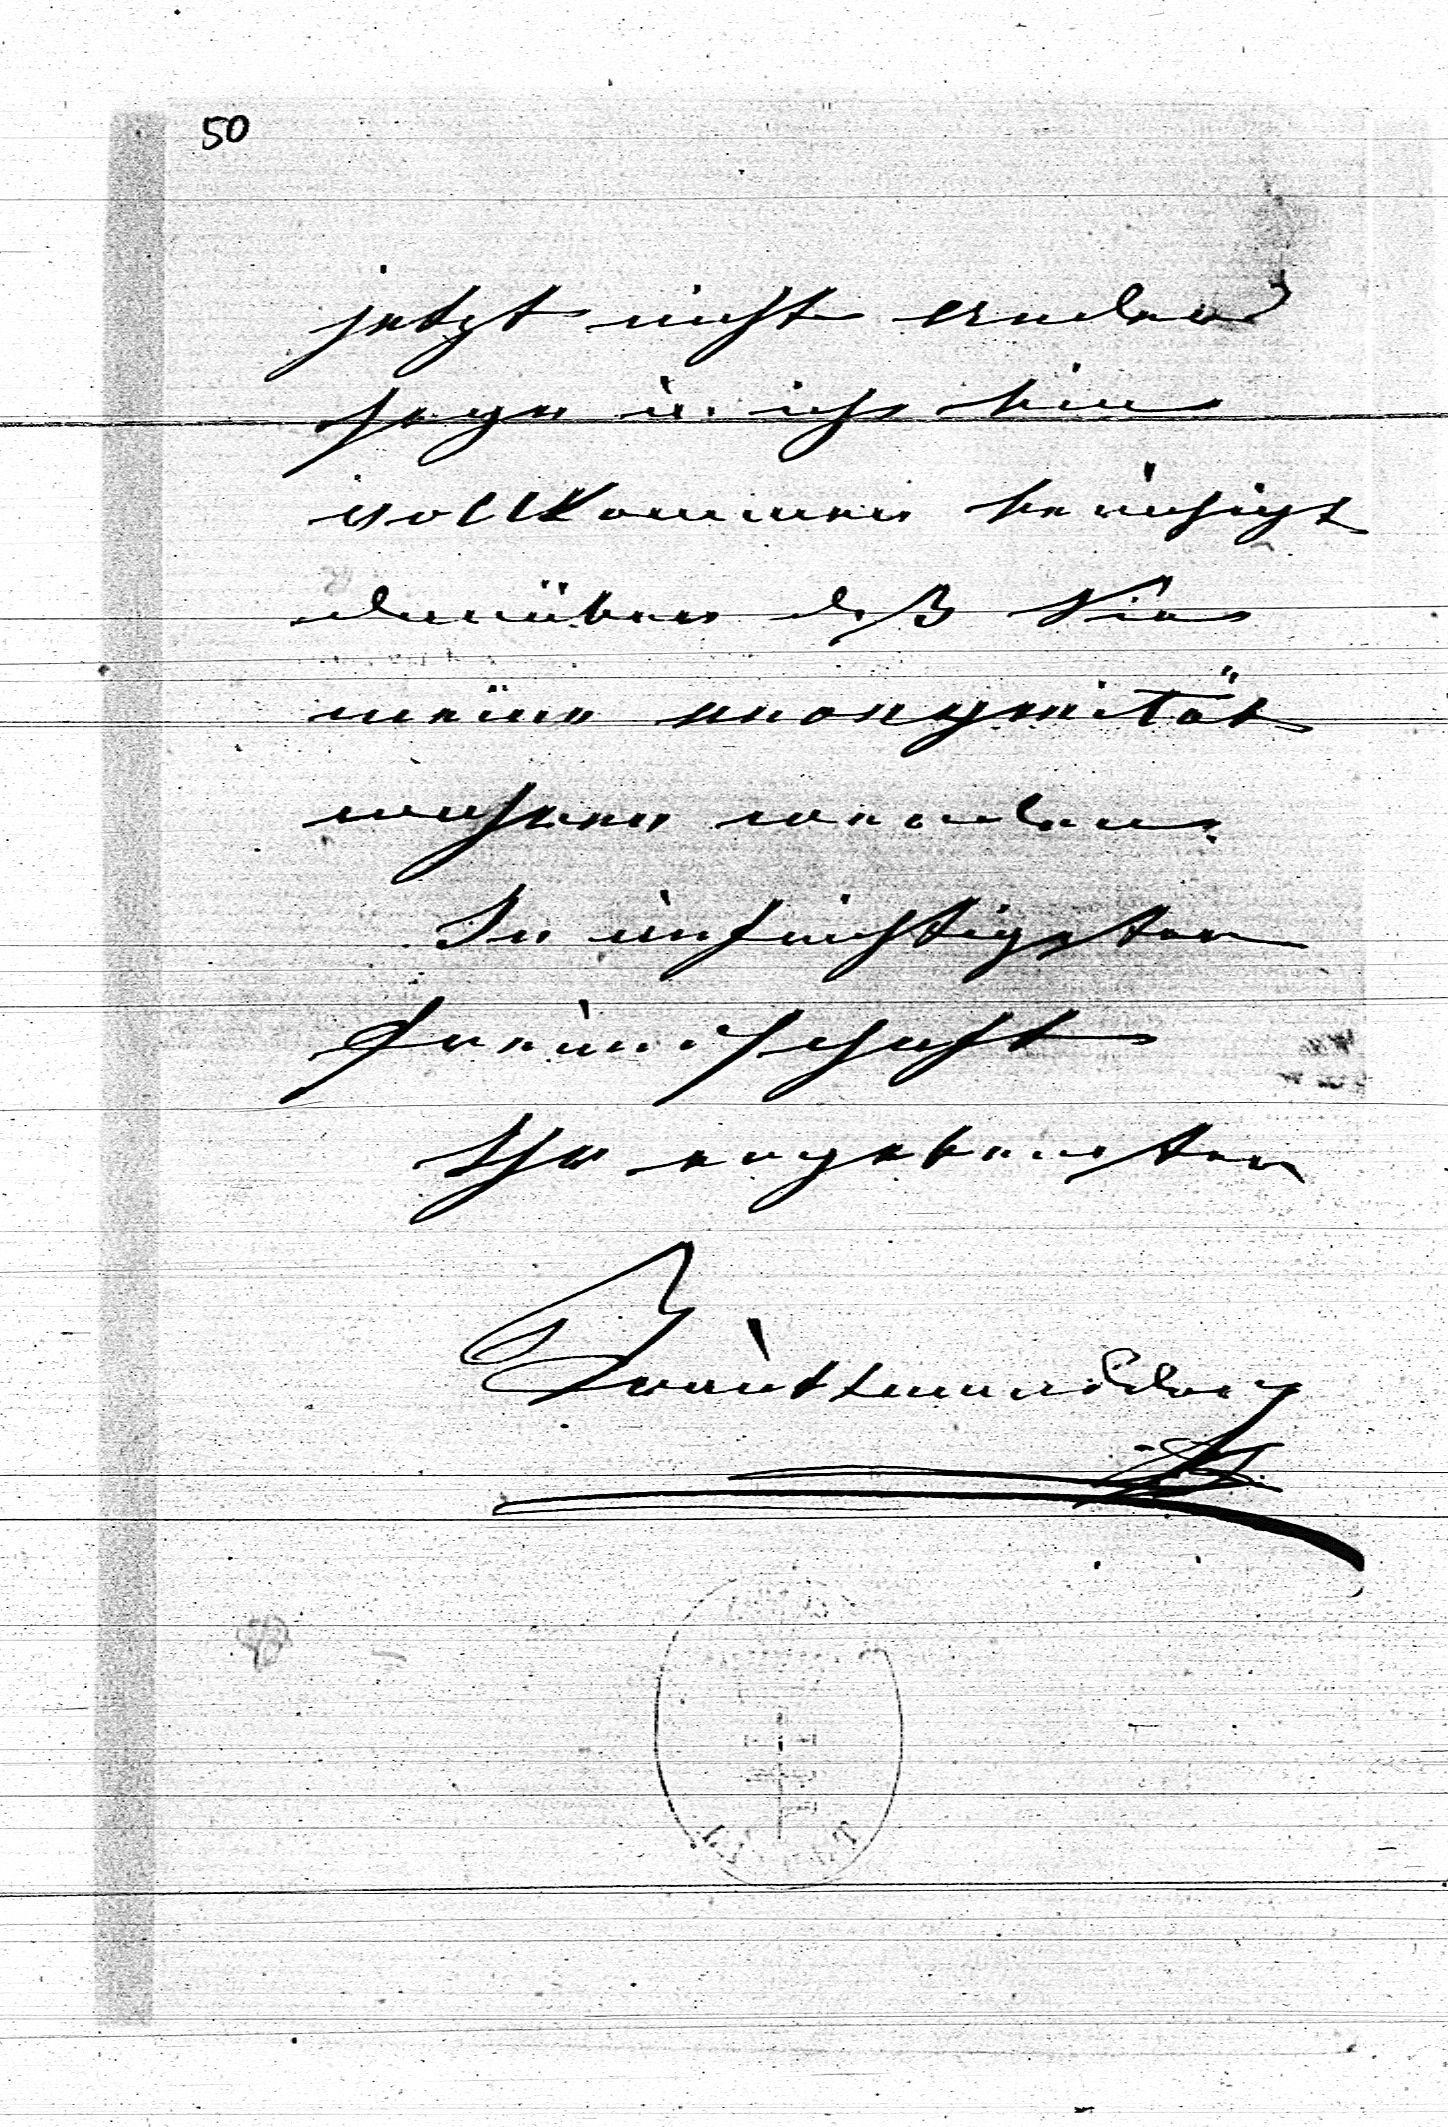 50
jetzt nicht anders
sagen u. ich bin
vollkommen beruhigt
darüber daß Sie
meine anonymität
wahren werden.
In aufrichtigster
Freundschaft
Ihr ergebenster
Trauttmansdorff